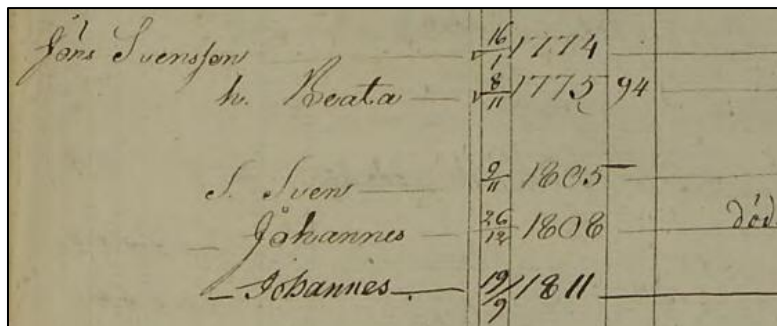 Jöns Svensson 16/1 1774
h. Beata 8/11 1775 94
S. Sven 9/11 1805
Johannes 26/12 1808 död
Johannes 19/9 1811